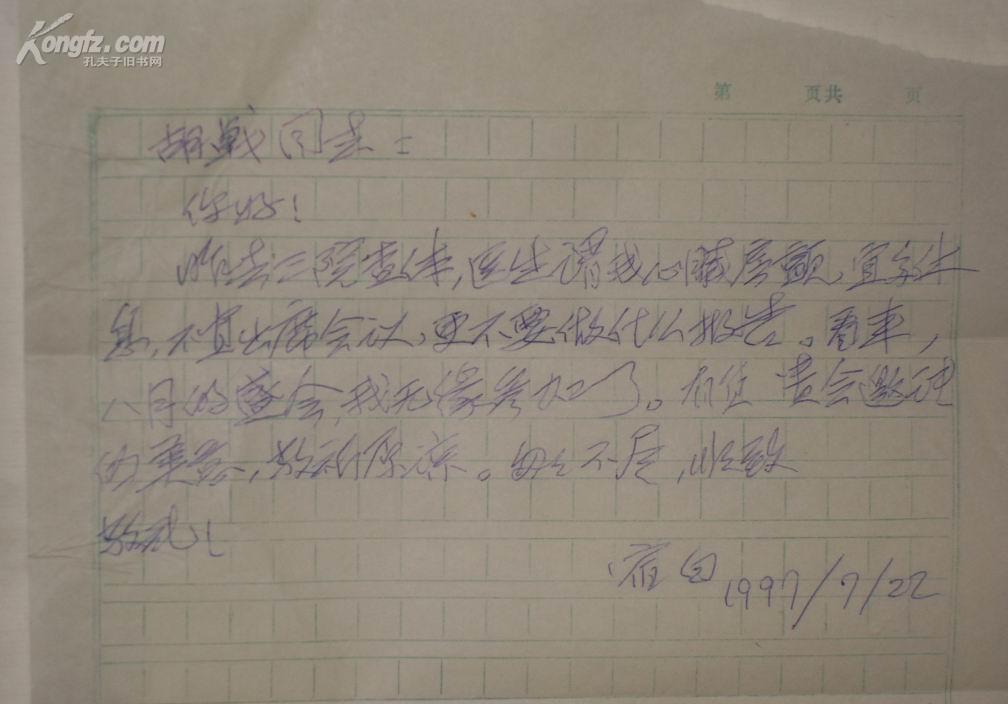 Kongfz.com
孔夫子旧书网
第 页共 页
胡戟同志:
你好!
昨去三院查体,医生谓我心脏房颤,宜多休
息,不宜出席会议,更不要做什么报告。看来,
八月的盛会,我无缘参加了。有负 贵会邀请
的美意,敬祈原谅。匆匆不尽,顺致
敬礼!
宿白 1997/7/22